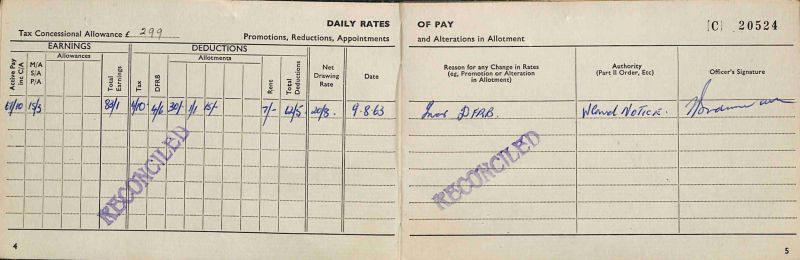 DAILY RATES OF PAY [C] 20524
Tax Concessional Allowance £ 299 Promotions, Reductions, Appointments and Alterations in Allotment
EARNINGS DEDUCTIONS
Allowances Allotments
Active Pay inc C/A
M/A S/A P/A
Total Earnings
Tax
DFRB
Rent
Total Deductions
Net Drawing Rate
Date
Reason for any Change in Rates (eg, Promotion or Alteration in Allotment)
Authority (Part II Order, Etc)
Officer's Signature
15/3 83/1 4/10 4/6 30/- 1/1 15/- 7/- 62/5 20/8 9.8.63 DFRB. NOTICE.
RECONCILED
RECONCILED
4 5